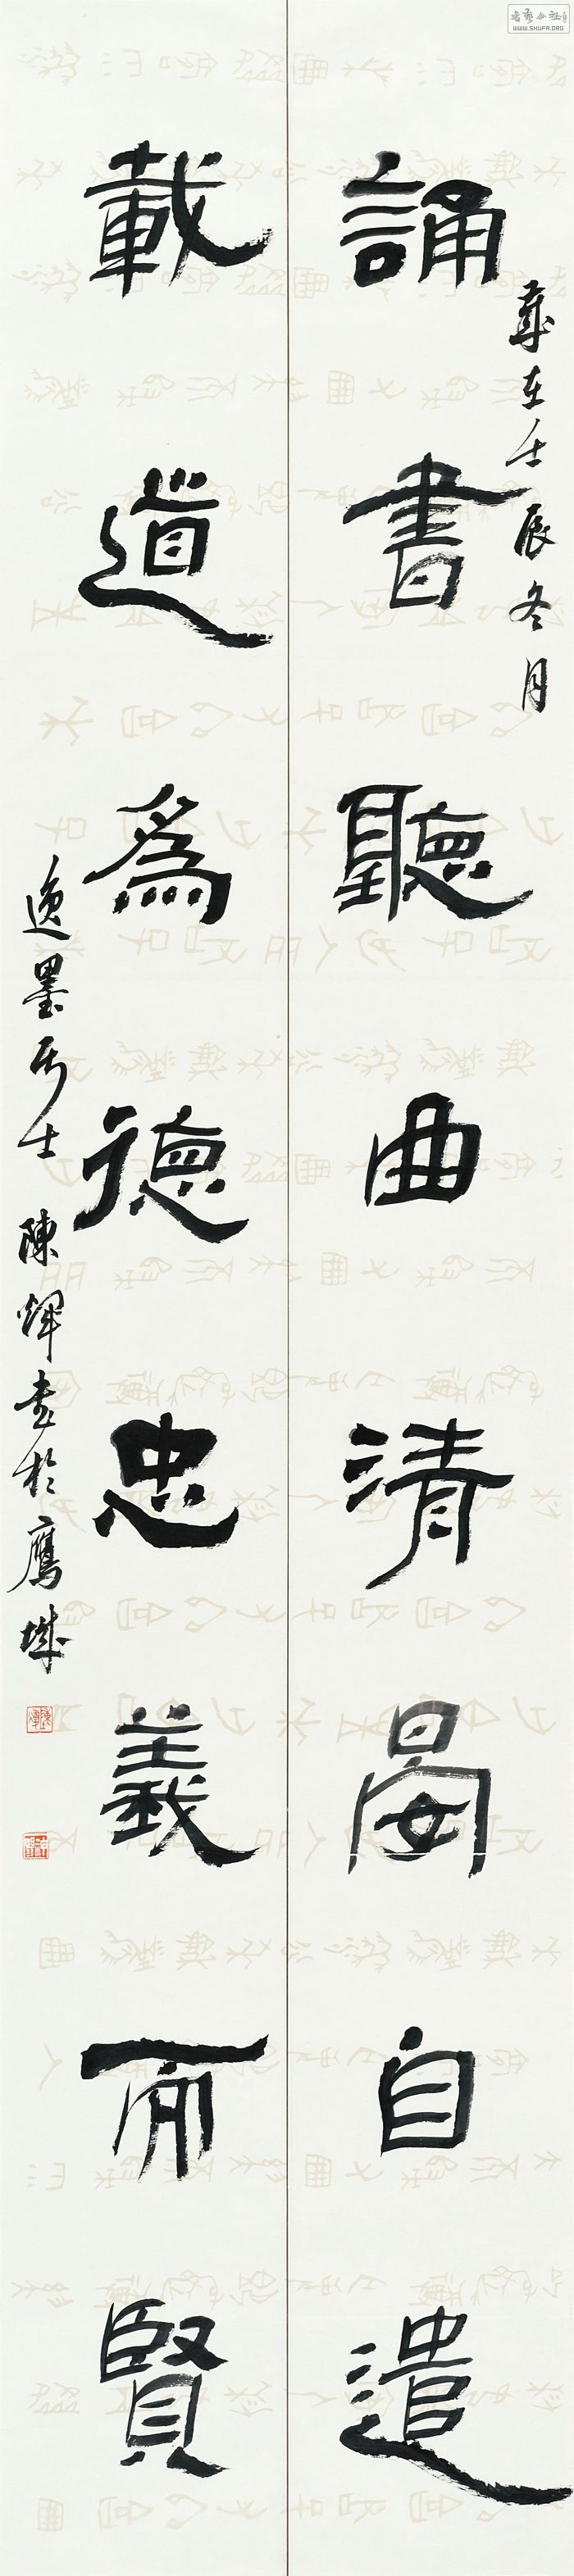 歲在壬辰冬月
誦書聽曲清晏自遣
載道為德忠義而賢
逸墨居士 陳輝書於鷹城
WWW.SHUFA.ORG